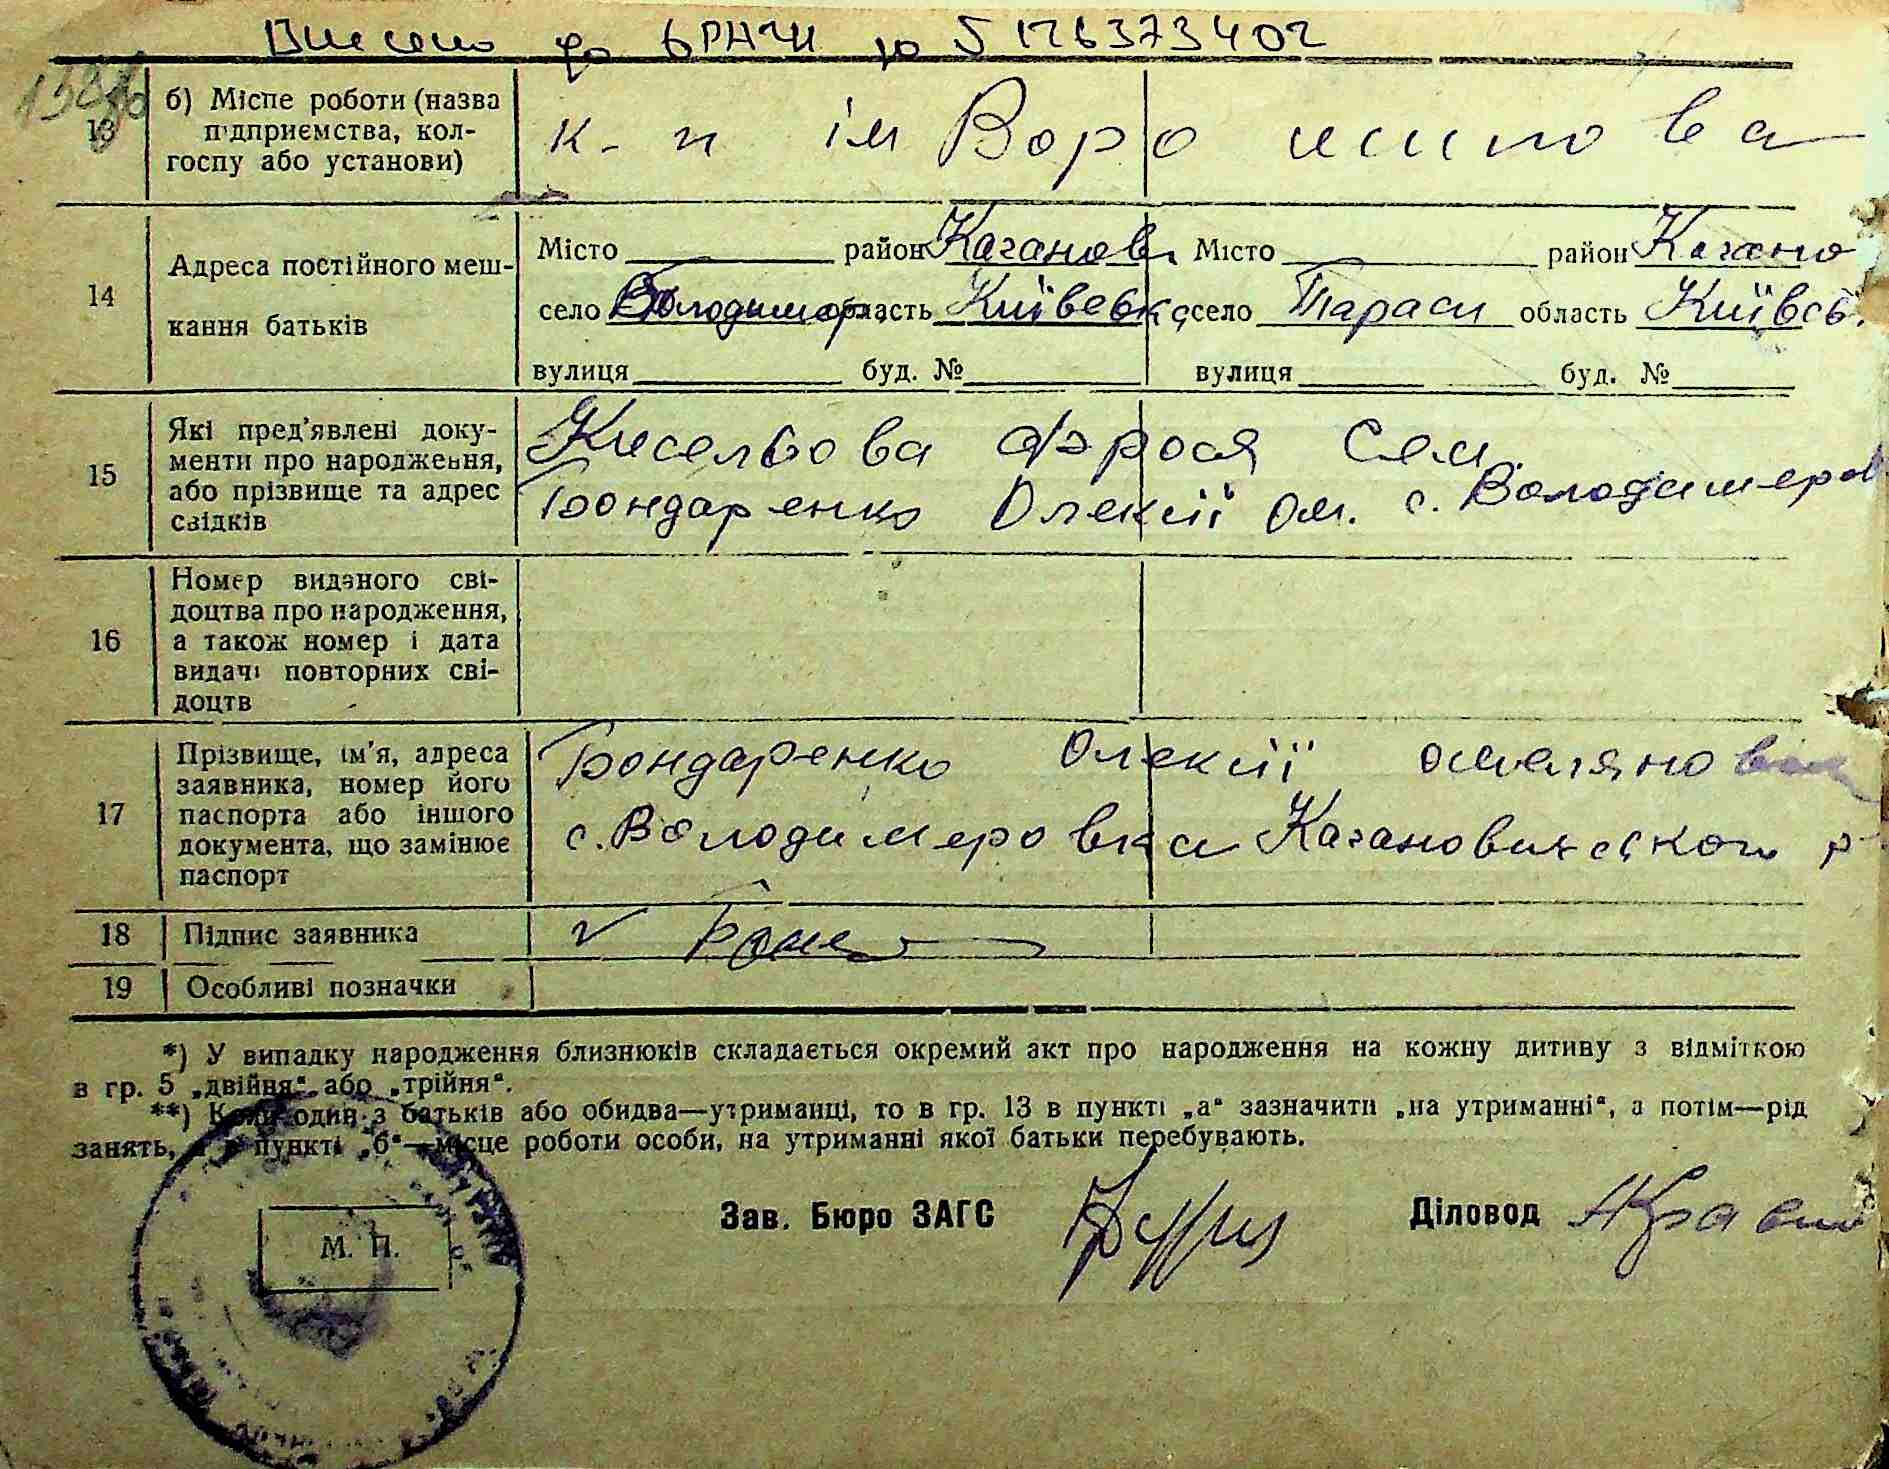 Внесено до
13
б) Місце роботи (назва
підприємства, кол-
госпу або установи)
к-п ім Ворошилова
14
Адреса постійного меш-
кання батьків
Місто район Каганов. Місто район Кагано
село Володимер. область Київська село Тараси область Київсь.
вулиця буд. № вулиця буд. №
15
Які пред'явлені доку-
менти про народження,
або прізвище та адрес
свідків
Кисельова Фрося Сем.
Бондаренко Олексій Ом. с. Володимеров
16
Номер виданого сві-
доцтва про народження,
а також номер і дата
видачі повторних сві-
доцтв
17
Прізвище, ім'я, адреса
заявника, номер його
паспорта або іншого
документа, що замінює
паспорт
Бондаренко Олексій Омеляно
с. Володимеровка Кагановичського р
18
Підпис заявника
19
Особливі позначки
*) У випадку народження близнюків складається окремий акт про народження на кожну дитину з відміткою
в гр. 5 „двійня“ або „трійня“.
**) Коли один з батьків або обидва—утриманці, то в гр. 13 в пункті „а“ зазначити „на утриманні“, а потім—рід
занять, а в пункті „б“—місце роботи особи, на утриманні якої батьки перебувають.
Зав. Бюро ЗАГС Діловод
М. П.